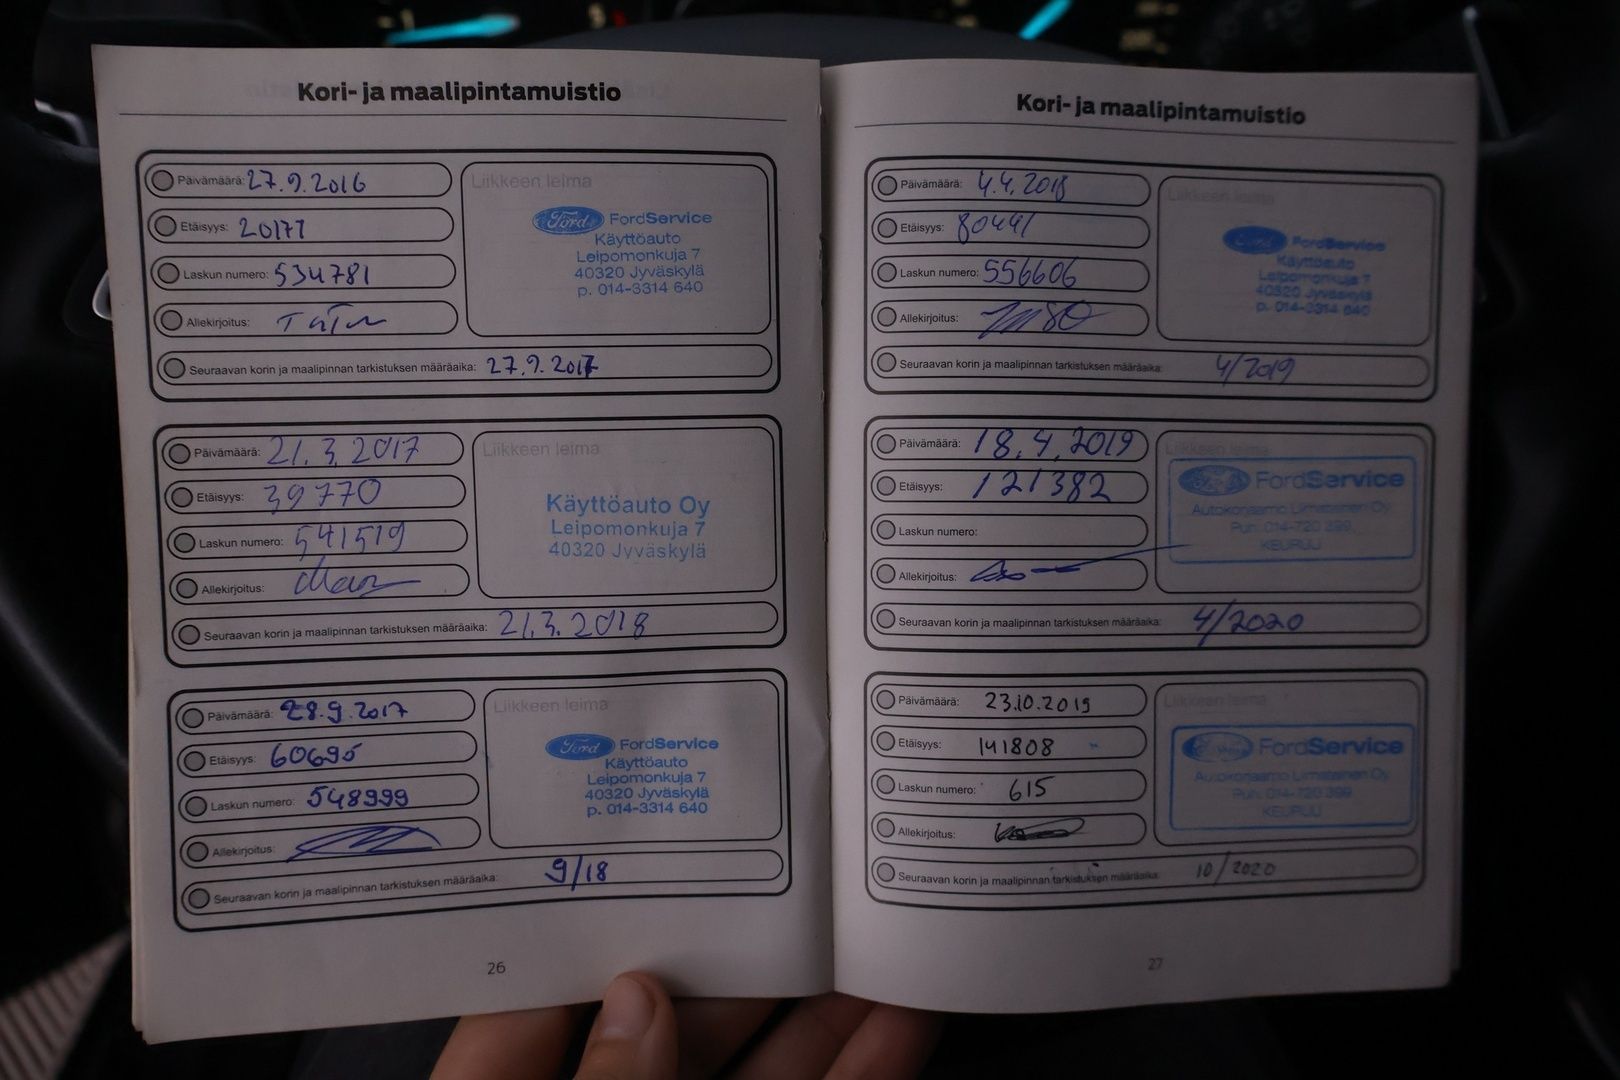 Kori- ja maalipintamuistio
Päivämäärä: 27.9.2016
Etäisyys: 20177
Laskun numero: 534781
Allekirjoitus:
Liikkeen leima
Ford FordService
Käyttöauto
Leipomonkuja 7
40320 Jyväskylä
p. 014-3314 640
Seuraavan korin ja maalipinnan tarkistuksen määräaika: 27.9.2017
Päivämäärä: 21.3.2017
Etäisyys: 39770
Laskun numero: 541519
Allekirjoitus:
Liikkeen leima
Käyttöauto Oy
Leipomonkuja 7
40320 Jyväskylä
Seuraavan korin ja maalipinnan tarkistuksen määräaika: 21.3.2018
Päivämäärä: 28.9.2017
Etäisyys: 60695
Laskun numero: 548999
Allekirjoitus:
Liikkeen leima
Ford FordService
Käyttöauto
Leipomonkuja 7
40320 Jyväskylä
p. 014-3314 640
Seuraavan korin ja maalipinnan tarkistuksen määräaika: 9/18
26
Kori- ja maalipintamuistio
Päivämäärä: 4.4.2018
Etäisyys: 80441
Laskun numero: 556606
Allekirjoitus:
Liikkeen leima
Ford FordService
Käyttöauto
Leipomonkuja 7
40320 Jyväskylä
p. 014-3314 640
Seuraavan korin ja maalipinnan tarkistuksen määräaika: 4/2019
Päivämäärä: 18.4.2019
Etäisyys: 121382
Laskun numero:
Allekirjoitus:
Liikkeen leima
FordService
Autokorjaamo Liimatainen Oy
Puh. 014-720 399
KEURUU
Seuraavan korin ja maalipinnan tarkistuksen määräaika: 4/2020
Päivämäärä: 23.10.2019
Etäisyys: 141808
Laskun numero: 615
Allekirjoitus:
Liikkeen leima
FordService
Autokorjaamo Liimatainen Oy
Puh. 014-720 399
KEURUU
Seuraavan korin ja maalipinnan tarkistuksen määräaika: 10/2020
27